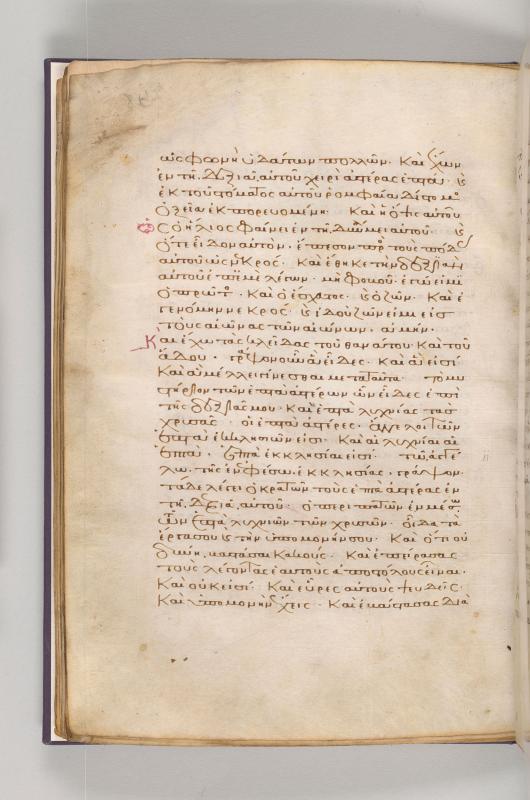 ὡς φωνὴ ὑδάτων πολλῶν. Καὶ ἔχων
ἐν τῇ δεξιᾷ αὐτοῦ χειρὶ ἀστέρας ἑπτά. καὶ
ἐκ τοῦ στόματος αὐτοῦ ῥομφαία δίστομος
ὀξεῖα ἐκπορευομένη. Καὶ ἡ ὄψις αὐτοῦ
ὡς ὁ ἥλιος φαίνει ἐν τῇ δυνάμει αὐτοῦ. καὶ
ὅτε εἶδον αὐτὸν, ἔπεσον πρὸς τοὺς πόδας
αὐτοῦ ὡς νεκρός. Καὶ ἔθηκε τὴν δεξιὰν
αὐτοῦ ἐπ' ἐμὲ λέγων. μὴ φοβοῦ. ἐγώ εἰμι
ὁ πρῶτος. Καὶ ὁ ἔσχατος. καὶ ὁ ζῶν. Καὶ ἐ
γενόμην νεκρός. καὶ ἰδοὺ ζῶν εἰμι εἰς
τοὺς αἰῶνας τῶν αἰώνων. ἀμήν.
Καὶ ἔχω τὰς κλεῖδας τοῦ θανάτου. Καὶ τοῦ
ἅδου. γράψον οὖν ἃ εἶδες. Καὶ ἃ εἰσί.
Καὶ ἃ μέλλει γίνεσθαι μετὰ ταῦτα. τὸ μυ
στήριον τῶν ἑπτὰ ἀστέρων ὧν εἶδες ἐπὶ
τῆς δεξιᾶς μου. Καὶ ἑπτὰ λυχνίας τὰς
χρυσᾶς. οἱ ἑπτὰ ἀστέρες. ἄγγελοι τῶν
ἑπτὰ ἐκκλησιῶν εἰσι. Καὶ αἱ λυχνίαι αἱ
ἑπτὰ. ἑπτὰ ἐκκλησίαι εἰσί. τῷ ἀγγέ
λῳ τῆς ἐν ἐφέσῳ ἐκκλησίας. γράψον.
τάδε λέγει ὁ κρατῶν τοὺς ἑπτὰ ἀστέρας ἐν
τῇ δεξιᾷ αὐτοῦ. ὁ περιπατῶν ἐν μέσῳ
τῶν ἑπτὰ λυχνιῶν τῶν χρυσῶν. οἶδα τὰ
ἔργα σου καὶ τὴν ὑπομονήν σου. Καὶ ὅτι οὐ
δύνῃ βαστάσαι κακούς. Καὶ ἐπείρασας
τοὺς λέγοντας ἑαυτοὺς ἀποστόλους εἶναι.
Καὶ οὐκ εἰσί. Καὶ εὗρες αὐτοὺς ψευδεῖς.
Καὶ ὑπομονὴν ἔχεις. Καὶ ἐβάστασας διὰ